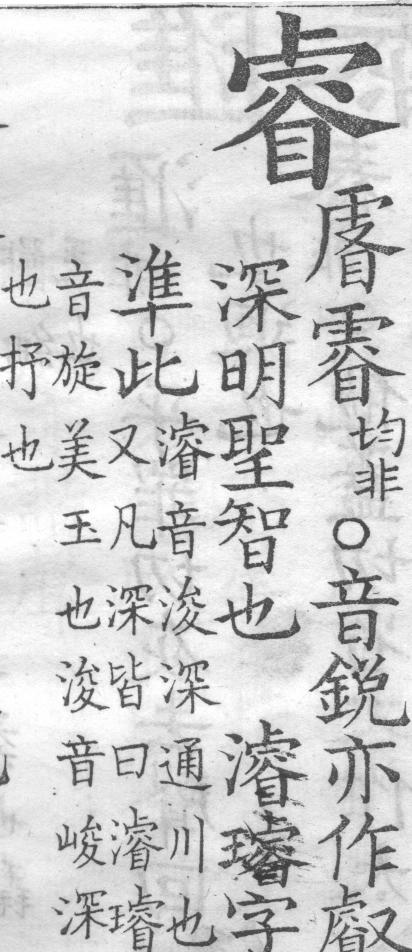 睿
均非
○音鋭亦作叡
深明聖智也 濬璿字
準此
濬音浚深通川也
又凡深皆曰濬璿
音旋美玉也浚音峻深
也抒也